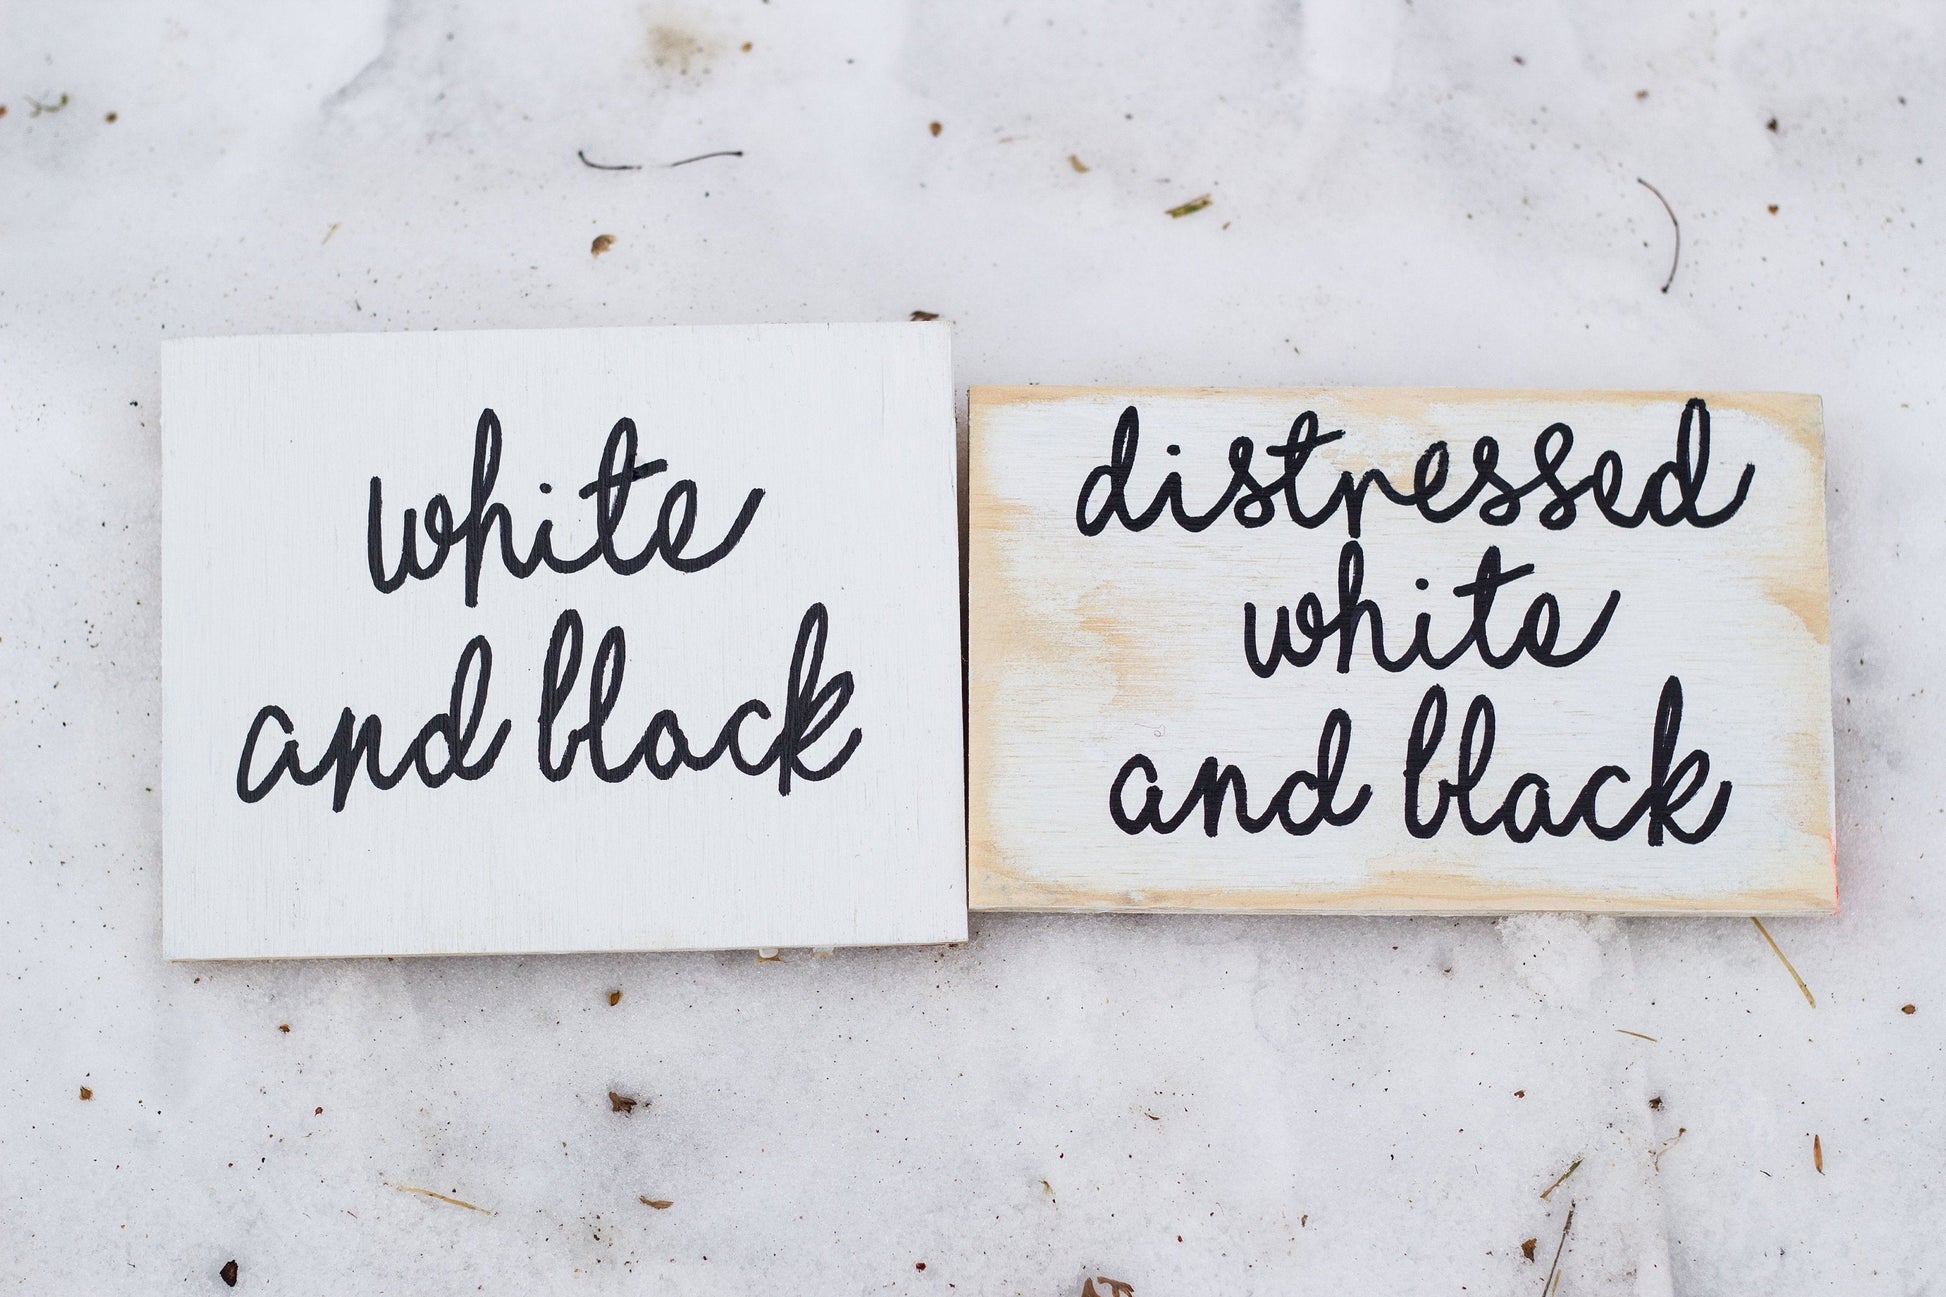 white
and black
distressed
white
and black